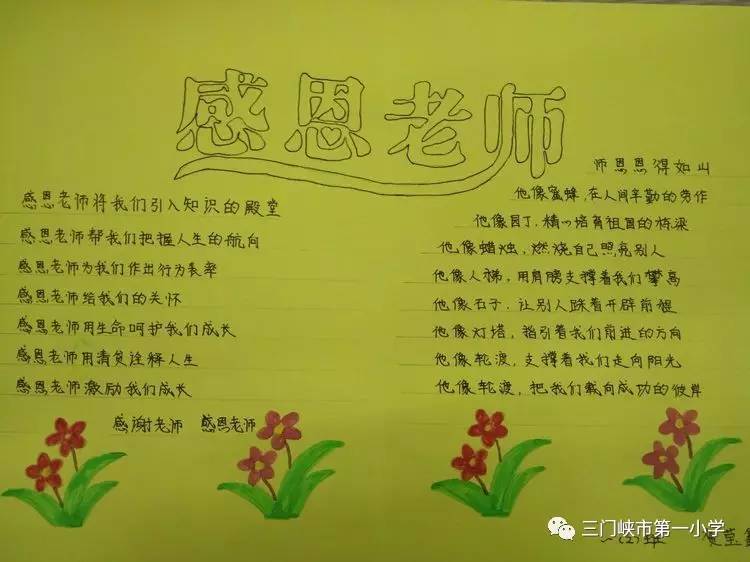 感恩老师
感恩老师将我们引入知识的殿堂
感恩老师帮我们把握人生的航向
感恩老师为我们作出行为表率
感恩老师给我们的关怀
感恩老师用生命呵护我们成长
感恩老师用清贫诠释人生
感恩老师激励我们成长
感谢老师 感恩老师
师恩恩得如山
他像蜜蜂,在人间辛勤的劳作
他像园丁,精心培育祖国的栋梁
他像蜡烛,燃烧自己照亮别人
他像人梯,用肩膀支撑着我们攀高
他像石子,让别人踩着开辟前程
他像灯塔,指引着我们前进的方向
他像轮渡,支撑着我们走向阳光
他像轮渡,把我们载向成功的彼岸
一(2)班
三门峡市第一小学